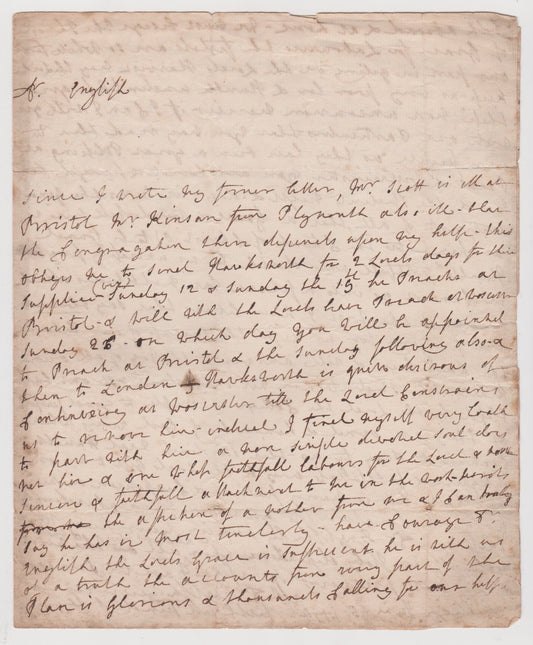 Dr. English
Since I wrote my former letter, Mr. Scott is ill at
Bristol Mr. Kinsan from Plymouth also ill - that
the Congregation there depends upon my help - this
obliges me to send Hawksworth for 2 Lords days for this
Supplies (viz) Sunday 12 & Sunday the 19th he Preachs at
Bristol - & will with the Lords leave Preach at Worcester
Sunday 26 - on which day you will be appointed
to Preach at Bristol & the Sunday following also - &
then to London Hawksworth is quite desirous of
Continuing at Worcester till the Lord Constrains
us to remove him - indeed I find myself very loath
to part with him a more simple devoted soul does
not live & one whose faithfull labours for the Lord &
sincere & faithfull attachment to me in the work - merits
the affection of a mother from me & I can truly
say he has it most tenderly - have Courage Dr.
English the Lords Grace is Sufficient he is with us
of a truth the accounts from every part of the
Plan is Glorious & thousands Calling for our help